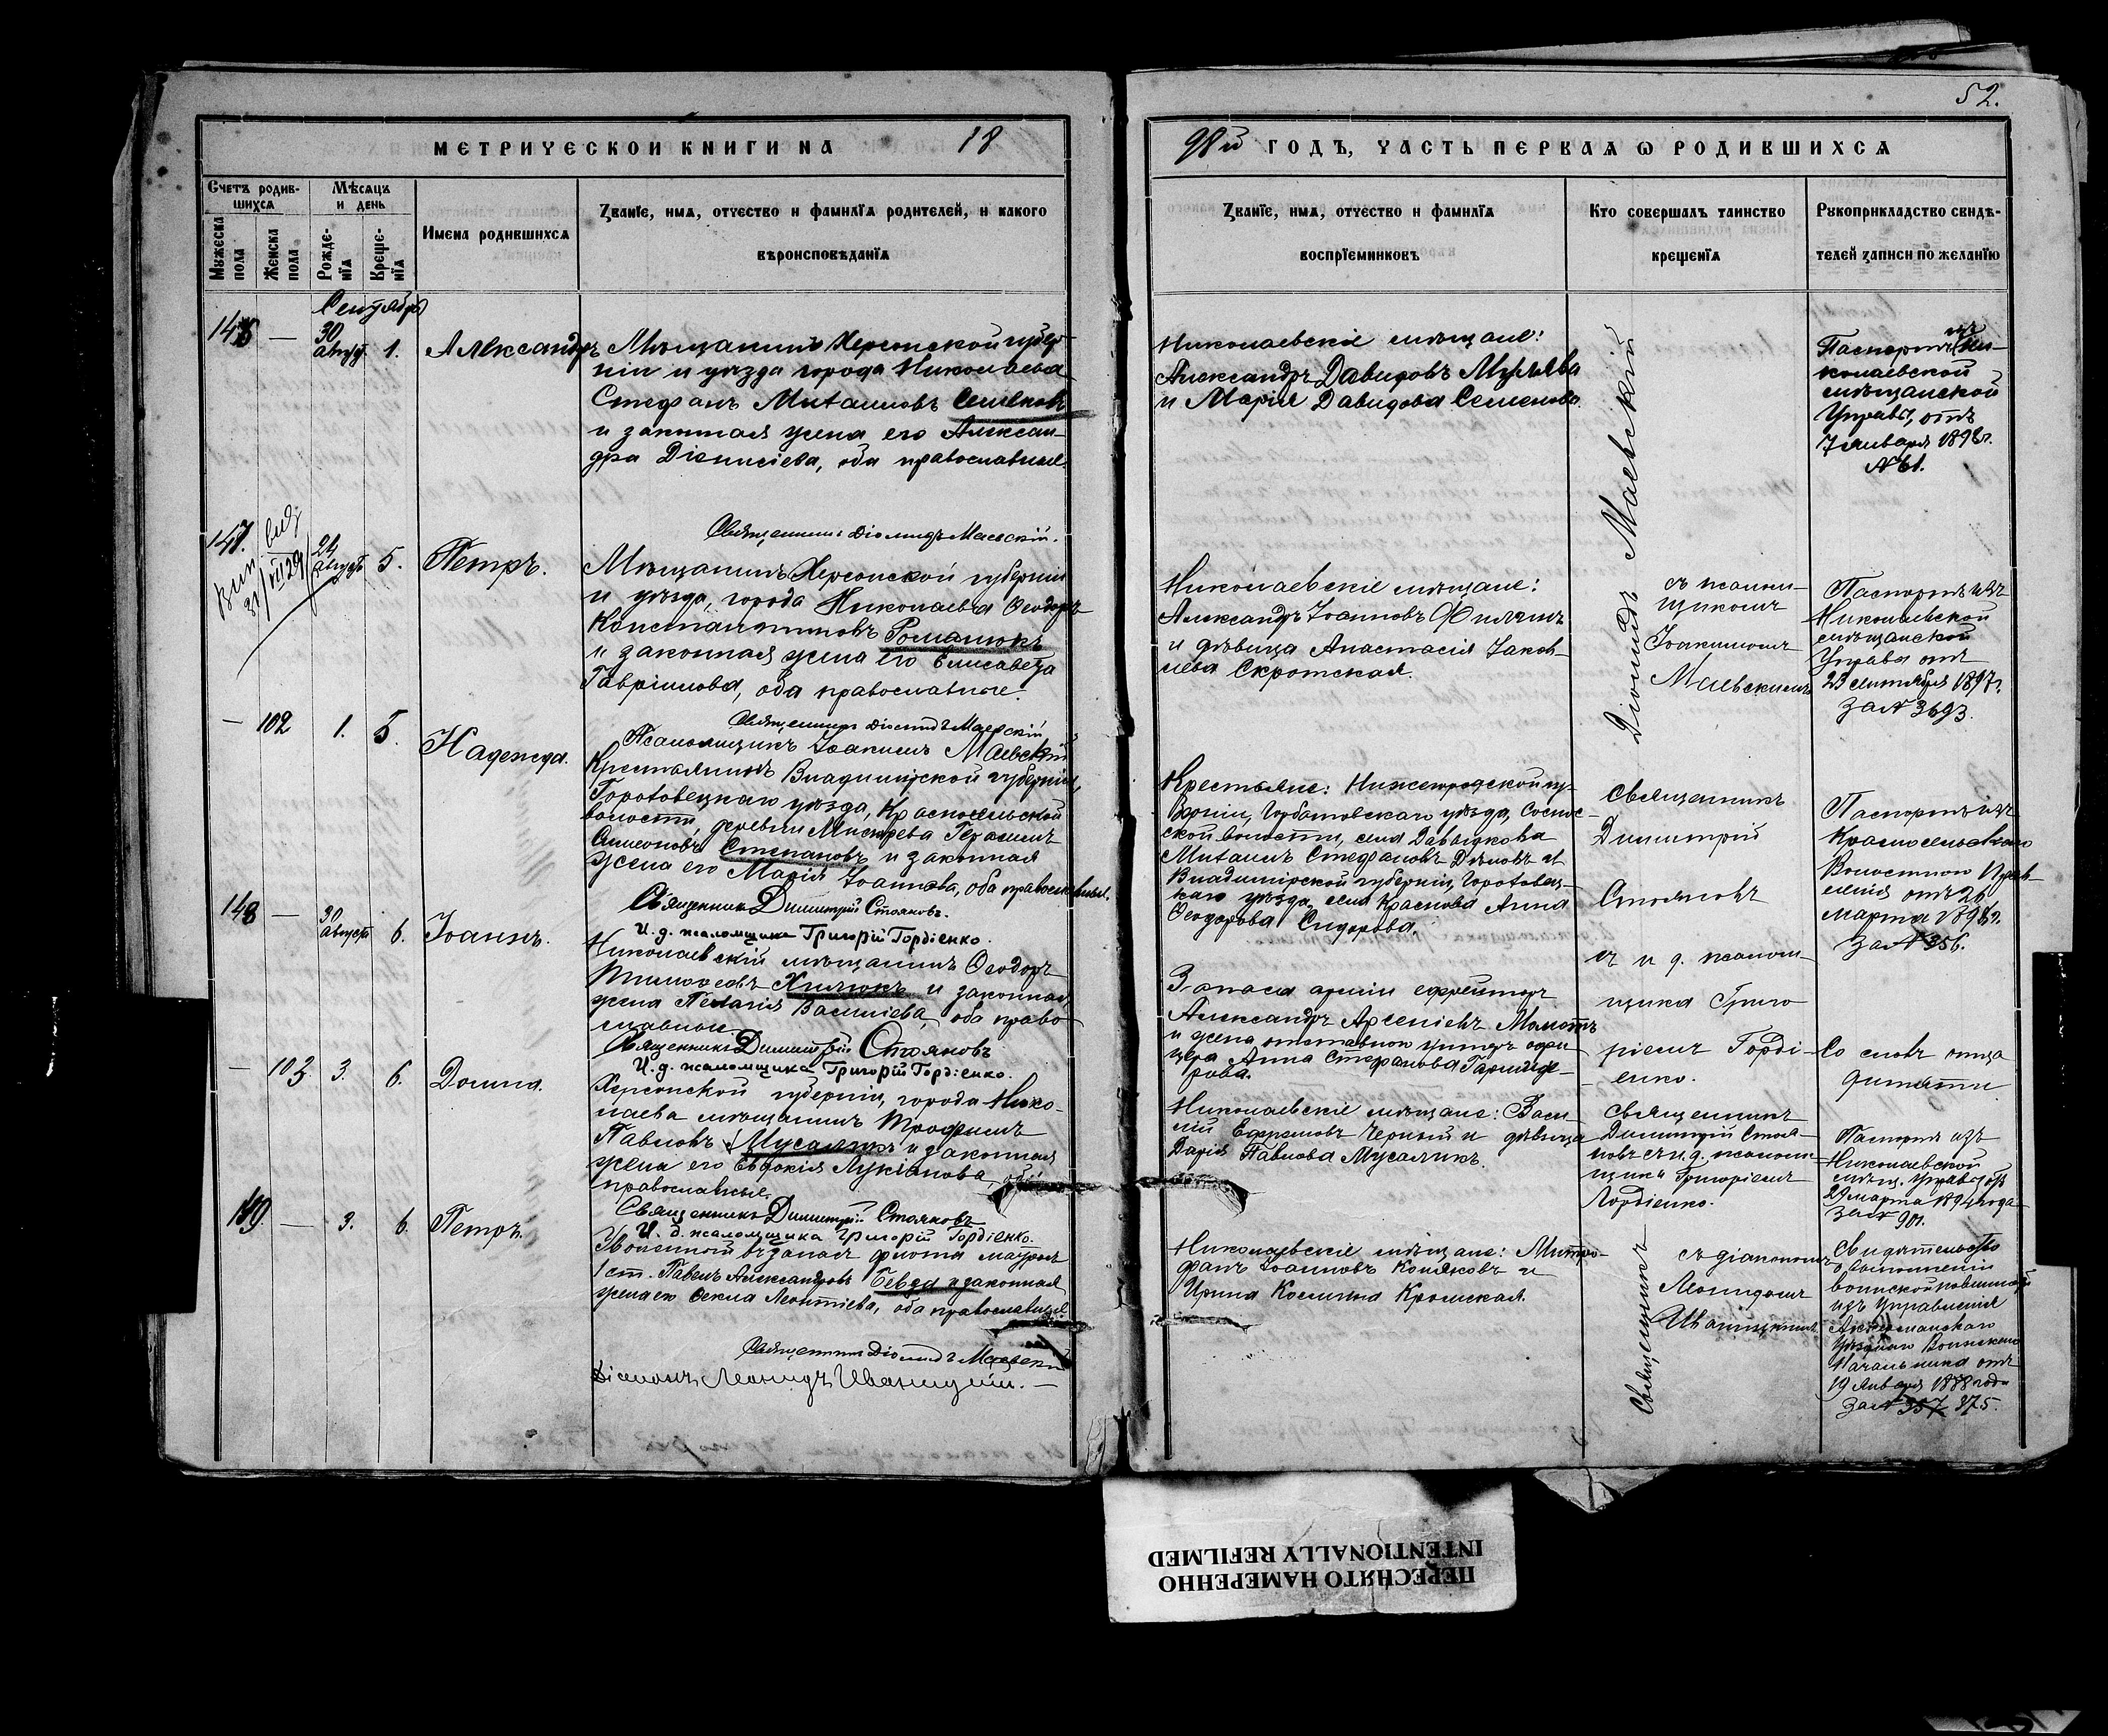 52.
МЕТРИЧЕСКОЙ КНИГИ НА 18
98й ГОДЪ, ЧАСТЬ ПЕРВАЯ Ѡ РОДИВШИХСЯ
Счетъ родив-
шихся
Мужеска
пола
Женска
пола
Мѣсяцъ
и день
Рожде-
нїя
Креще-
нїя
Имена родившихся
Званїе, имя, отчество и фамилїя родителей, и какого
вѣроисповѣданїя
Званїе, имя, отчество и фамилїя
воспрїемниковъ
Кто совершалъ таинство
крещенїя
Рукоприкладство свидѣ-
телей записи по желанїю
Сентябрь
146
—
30
август.
1.
Александръ
Мѣщанинъ Херсонской губер-
ніи и уѣзда города Николаева
Стефанъ Михаиловъ Семеновъ
и законная жена его Алексан-
дра Діонисіева, оба православные.
Священникъ Діомидъ Маевскій.
Николаевскіе мѣщане:
Александръ Давидовъ
и Марія Давидова Семенова
Діомидъ Маевскій
Паспортъ изъ Ни-
колаевской
мѣщанской
Управы, отъ
7 января 1898 г.
№ 61.
147.
24
август
5.
Петръ.
Мѣщанинъ Херсонской губерніи
и уѣзда, города Николаева Ѳеодоръ
Константиновъ Романюкъ
и законная жена его Елисавета
Гавріилова, оба православные.
Священникъ Діомидъ Маевскій
Псаломщикъ Іоакимъ Маевскій
Николаевскіе мѣщане:
Александръ Іоанновъ Филинъ
и дѣвица Анастасія Іаков-
лева Скротская.
съ псалом-
щикомъ
Іоакимомъ
Маевскимъ
Паспортъ изъ
Николаевской
мѣщанской
Управы отъ
23 сентября 1897 г.
за № 3693.
—
102
1.
5.
Надежда.
Крестьянинъ Владимірской губерніи,
Гороховецкаго уѣзда, Красносельской
волости, деревни Герасимъ
Симеоновъ Степановъ и законная
жена его Марія Іоаннова, оба православные.
Священникъ Димитрій Стояновъ.
И. д. псаломщика Григорій Гордіенко.
Крестьяне: Нижегородской гу-
берніи, Горбатовскаго уѣзда, Соснов-
ской волости, села Давыдкова
Михаилъ Стефановъ Дѣловъ и
Владимірской губерніи, Гороховец-
каго уѣзда, села Краснова Анна
Ѳеодорова Сидорова.
Священникъ
Димитрій
Стояновъ
съ и д. псалом-
щика Григо
ріемъ Горді-
енко.
Паспортъ изъ
Красносельскаго
Волостного Прав-
ленія отъ 26
марта 1898 г.
за № 356.
148
—
30
августа
6.
Іоаннъ.
Николаевскій мѣщанинъ Ѳеодоръ
Тимоѳеевъ Хилюкъ и законная
жена Пелагія Василіева, оба право
славные
Священникъ Димитрій Стояновъ
И. д. псаломщика Григорій Гордіенко.
Запаса арміи ефрейторъ
Александръ Арсеніевъ
и жена отставного унтеръ офи-
цера Анна Стефанова
Со словъ отца
дитяти
—
103.
3.
6.
Домна.
Херсонской губерніи, города Нико-
лаева мѣщанинъ Трофимъ
Павловъ Мусалинъ и законная
жена его Евдокія Лукіанова, оба
православные.
Священникъ Димитрій Стояновъ
И. д. псаломщика Григорій Гордіенко.
Николаевскіе мѣщане: Васи
лій Ефремовъ Черный и дѣвица
Дарія Павлова Мусалинъ.
Священникъ
Димитрій Стоя-
новъ съ и. д. псалом-
щика Григоріемъ
Гордіенко.
Паспортъ изъ
Николаевской
мѣщ. Управы отъ
29 марта 1894 года
за № 901.
149.
—
3.
6.
Петръ.
Уволенный въ запасъ флота матросъ
1 ст. Павелъ Александровъ Бевза и законная
жена его Ѳекла Леонтіева, оба православные.
Священникъ Діомидъ Маевскій
Діаконъ Леонидъ Иваницкій. —
Николаевскіе мѣщане: Митро-
фанъ Іоанновъ Коняковъ и
Ирина Космина Кромская.
Священникъ
съ діакономъ
Леонидомъ
Иваницкимъ
Свидѣтельство
о выполненіи
воинской повинности
изъ Управленія
Аккерманскаго
Уѣзднаго Воинскаго
Начальника отъ
19 января 1888 года
за № 357 375.
ПЕРЕСНЯТО НАМЕРЕННО
INTENTIONALLY REFILMED